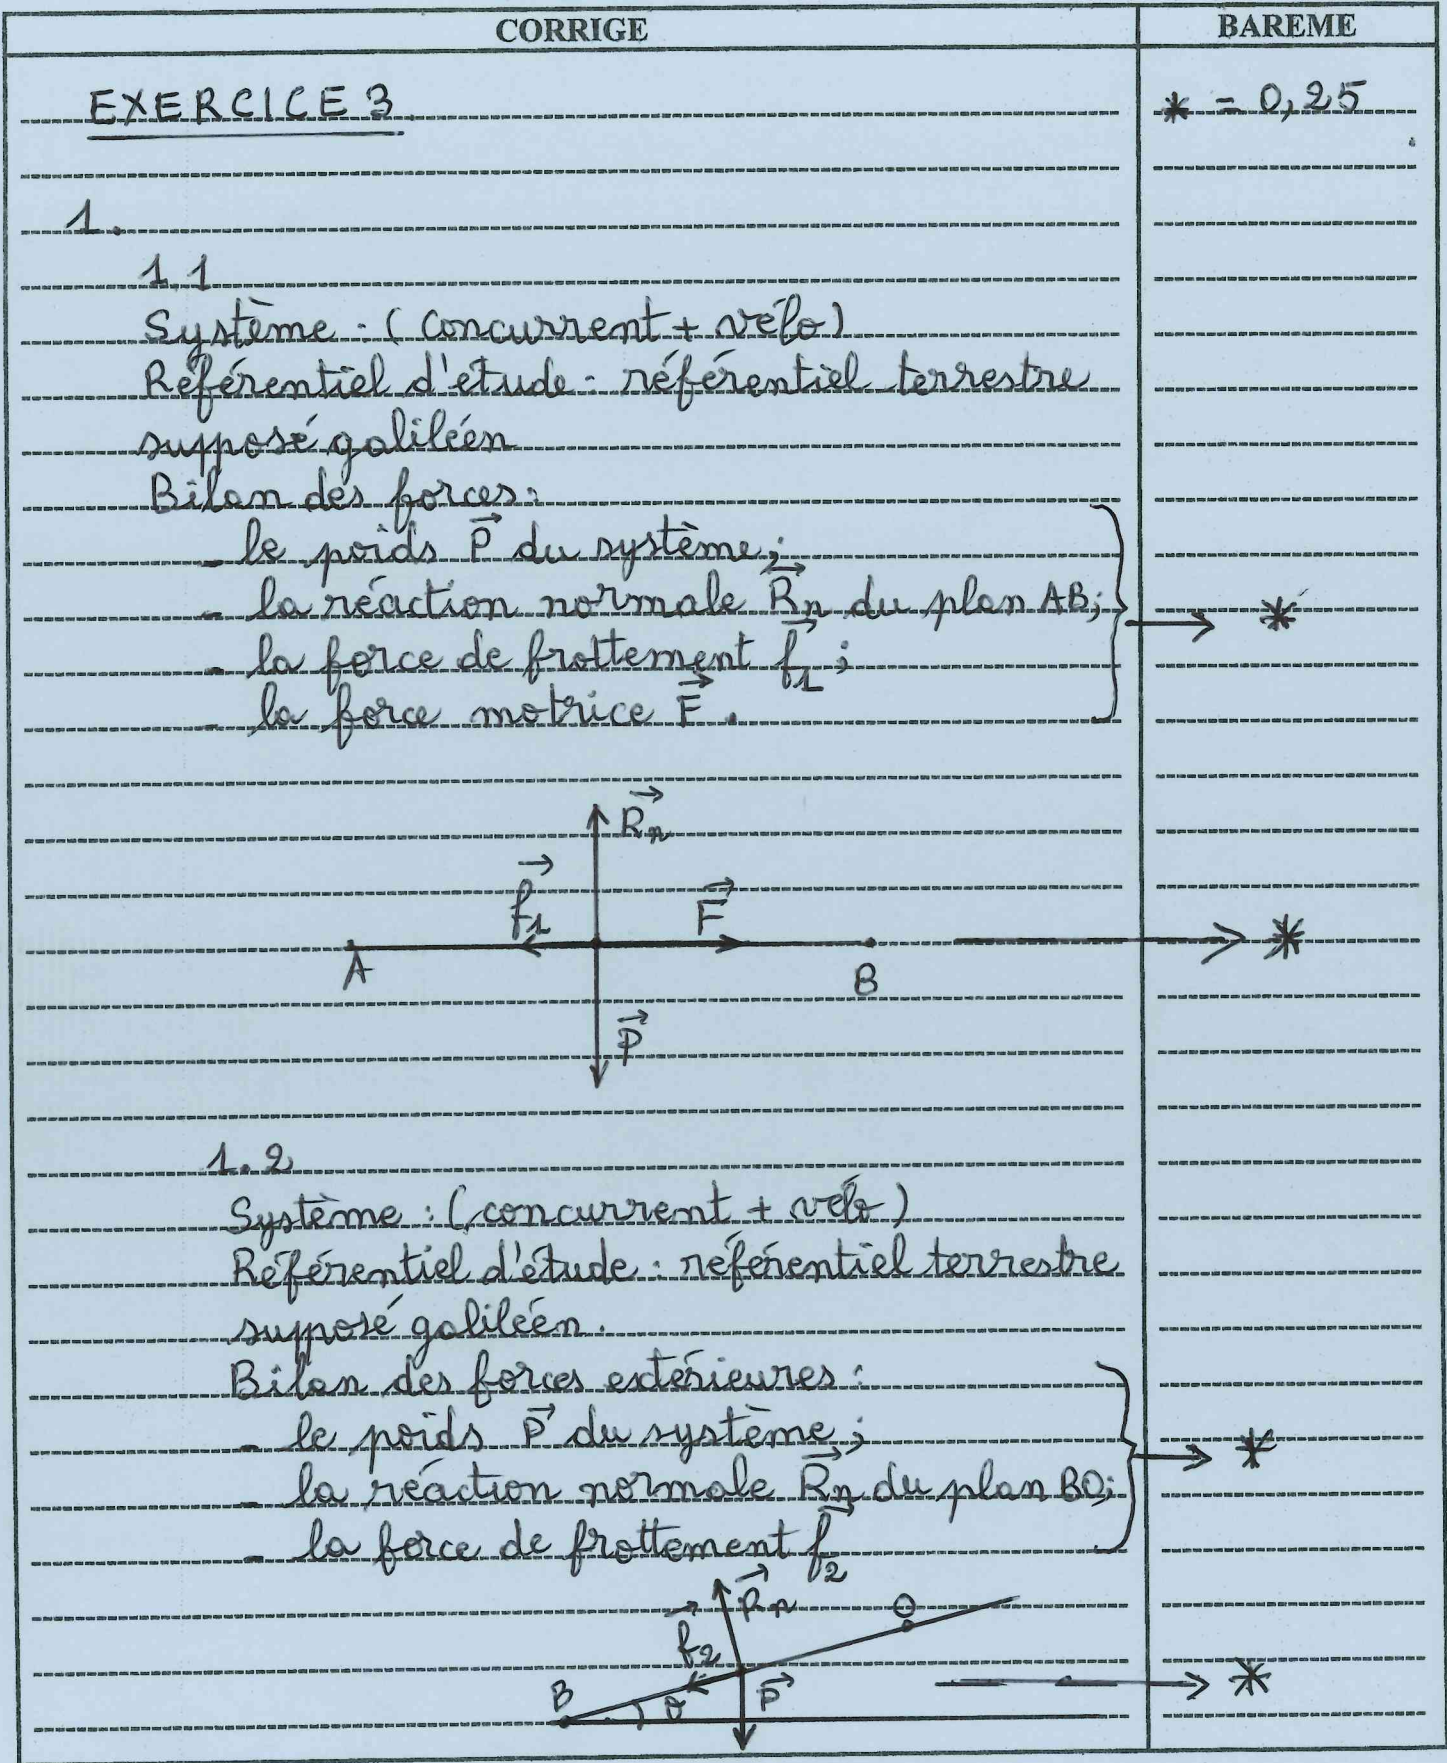 CORRIGE
BAREME
EXERCICE 3.
* = 0,25
1.
1.1
Système : (concurrent + vélo)
Référentiel d'étude : référentiel terrestre
supposé galiléen
Bilan des forces :
- le poids P⃗ du système ;
- la réaction normale R⃗n du plan AB ;
→ *
- la force de frottement f⃗1 ;
- la force motrice F⃗ .
R⃗n
f⃗1
F⃗
A
B
→ *
P⃗
1.2
Système : (concurrent + vélo)
Référentiel d'étude : référentiel terrestre
supposé galiléen.
Bilan des forces extérieures :
- le poids P⃗ du système ;
→ *
- la réaction normale R⃗n du plan BO ;
- la force de frottement f⃗2
R⃗n
O
f⃗2
B
θ
P⃗
→ *